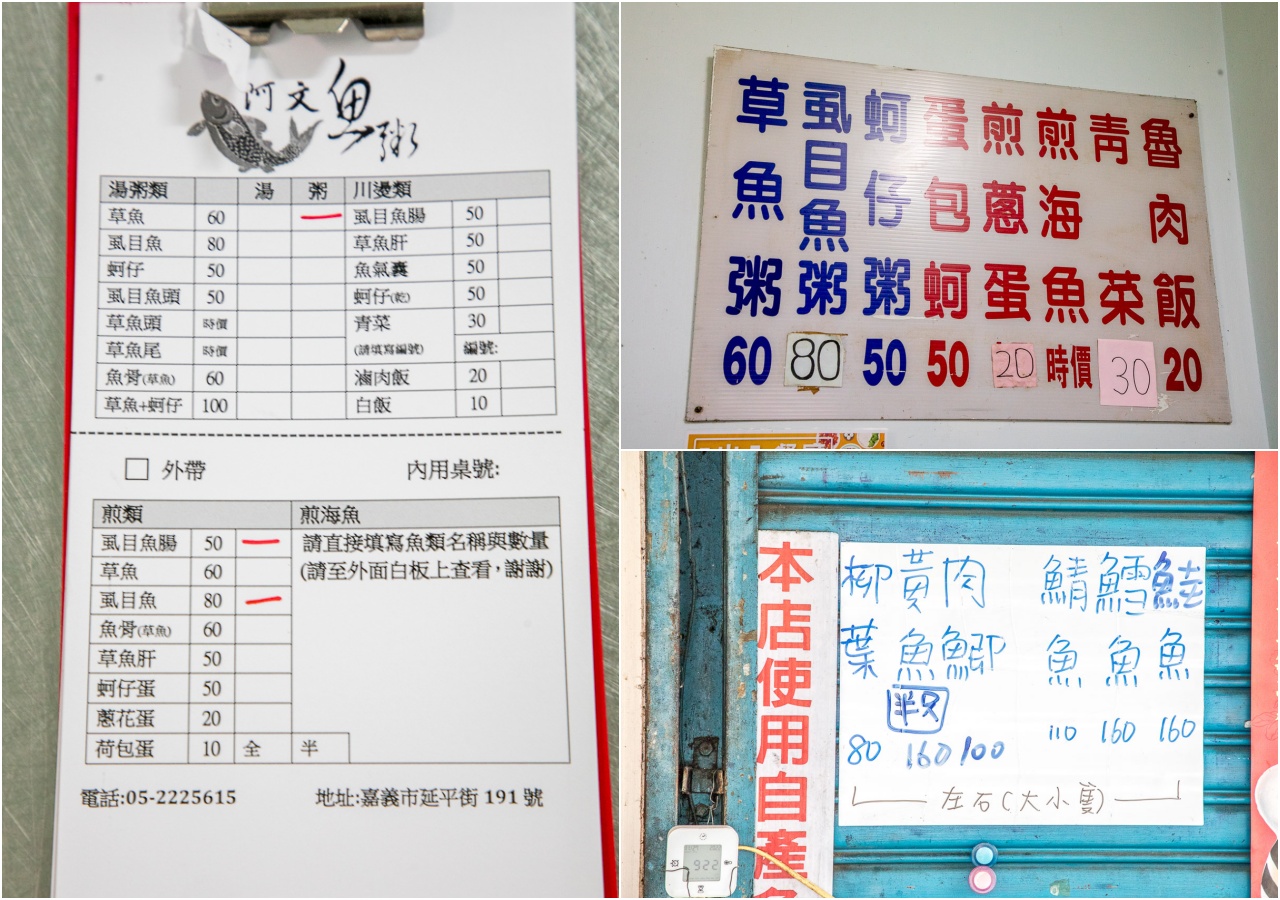 阿文魚粥
湯粥類 湯 粥 川燙類
草魚 60 虱目魚腸 50
虱目魚 80 草魚肝 50
蚵仔 50 魚氣囊 50
虱目魚頭 50 蚵仔(乾) 50
草魚頭 時價 青菜 30
草魚尾 時價 (請填寫編號) 編號:
魚骨(草魚) 60 滷肉飯 20
草魚+蚵仔 100 白飯 10
外帶 內用桌號:
煎類 煎海魚
虱目魚腸 50 請直接填寫魚類名稱與數量
草魚 60 (請至外面白板上查看,謝謝)
虱目魚 80
魚骨(草魚) 60
草魚肝 50
蚵仔蛋 50
蔥花蛋 20
荷包蛋 10 全 半
電話:05-2225615 地址:嘉義市延平街 191 號
草魚粥 60
虱目魚粥 80
蚵仔粥 50
蛋包蚵 50
煎蔥蛋 20
煎海魚 時價
青菜 30
魯肉飯 20
本店使用自產
柳葉魚 80
黃魚 半只 160
肉鯽 100
鯖魚 110
鱈魚 160
鮭魚 160
左右(大小隻)
922